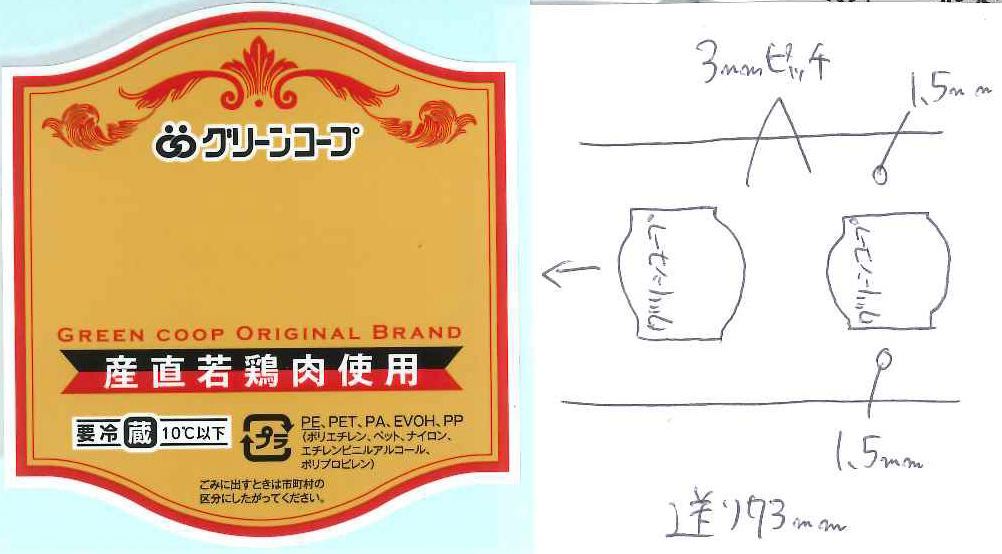 グリーンコープ
GREEN COOP ORIGINAL BRAND
産直若鶏肉使用
要冷蔵 10℃以下
プラ
PE、PET、PA、EVOH、PP
(ポリエチレン、ペット、ナイロン、
エチレンビニルアルコール、
ポリプロピレン)
ごみに出すときは市町村の
区分にしたがってください。
3mmピッチ
1.5mm
1.5mm
送り73mm